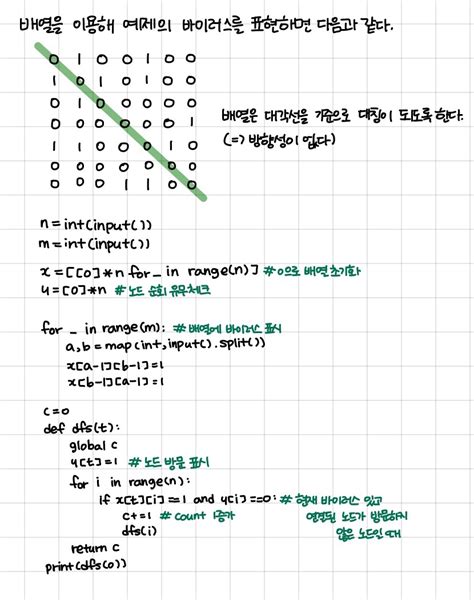 배열을 이용해 예제의 바이러스를 표현하면 다음과 같다.
0 1 0 0 1 0 0
1 0 1 0 1 0 0
0 1 0 0 0 0 0
0 0 0 0 0 0 1
1 1 0 0 0 1 0
0 0 0 0 1 0 0
0 0 0 1 0 0 0
배열은 대각선을 기준으로 대칭이 되도록 한다.
(=> 방향성이 없다)
n = int(input())
m = int(input())
x = [[0]*n for _ in range(n)] #0으로 배열 초기화
y = [0]*n # 노드 순회 유무체크
for _ in range(m): #배열에 바이러스 표시
a,b = map(int,input().split())
x[a-1][b-1]=1
x[b-1][a-1]=1
c=0
def dfs(t):
global c
y[t]=1 # 노드 방문 표시
for i in range(n):
if x[t][i]==1 and y[i]==0: # 현재 바이러스 있고
c+=1 # count 1증가 연결된 노드가 방문하지
dfs(i) 않은 노드일 때
return c
print(dfs(0))